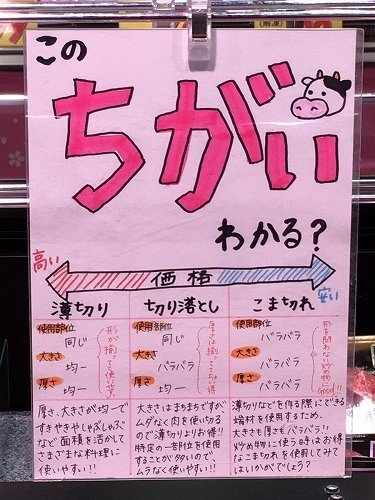 この
ちがい
わかる?
高い
価格
安い
薄切り
使用部位
同じ
大きさ
均一
厚さ
均一
形が揃ってて使いやすい
厚さ、大きさが均一で
すきやきやしゃぶしゃぶ
など面積を活かして
さまざまな料理に
使いやすい!!
切り落とし
使用部位
同じ
大きさ
バラバラ
厚さ
バラバラ
大きさはまちまちですが
ムダなく肉を使い切る
ので薄切りよりお得!!
特定の一部位を使用
することが多いので
ムラなく使いやすい!!
こま切れ
使用部位
バラバラ
大きさ
バラバラ
厚さ
バラバラ
形を問わない炒め物に
Good!!
薄切りなどを作る際にできる
端材を使用するため、
大きさも厚さもバラバラ!!
炒め物に使う時はお得
なこま切れを使用してみて
はいかがでしょう?